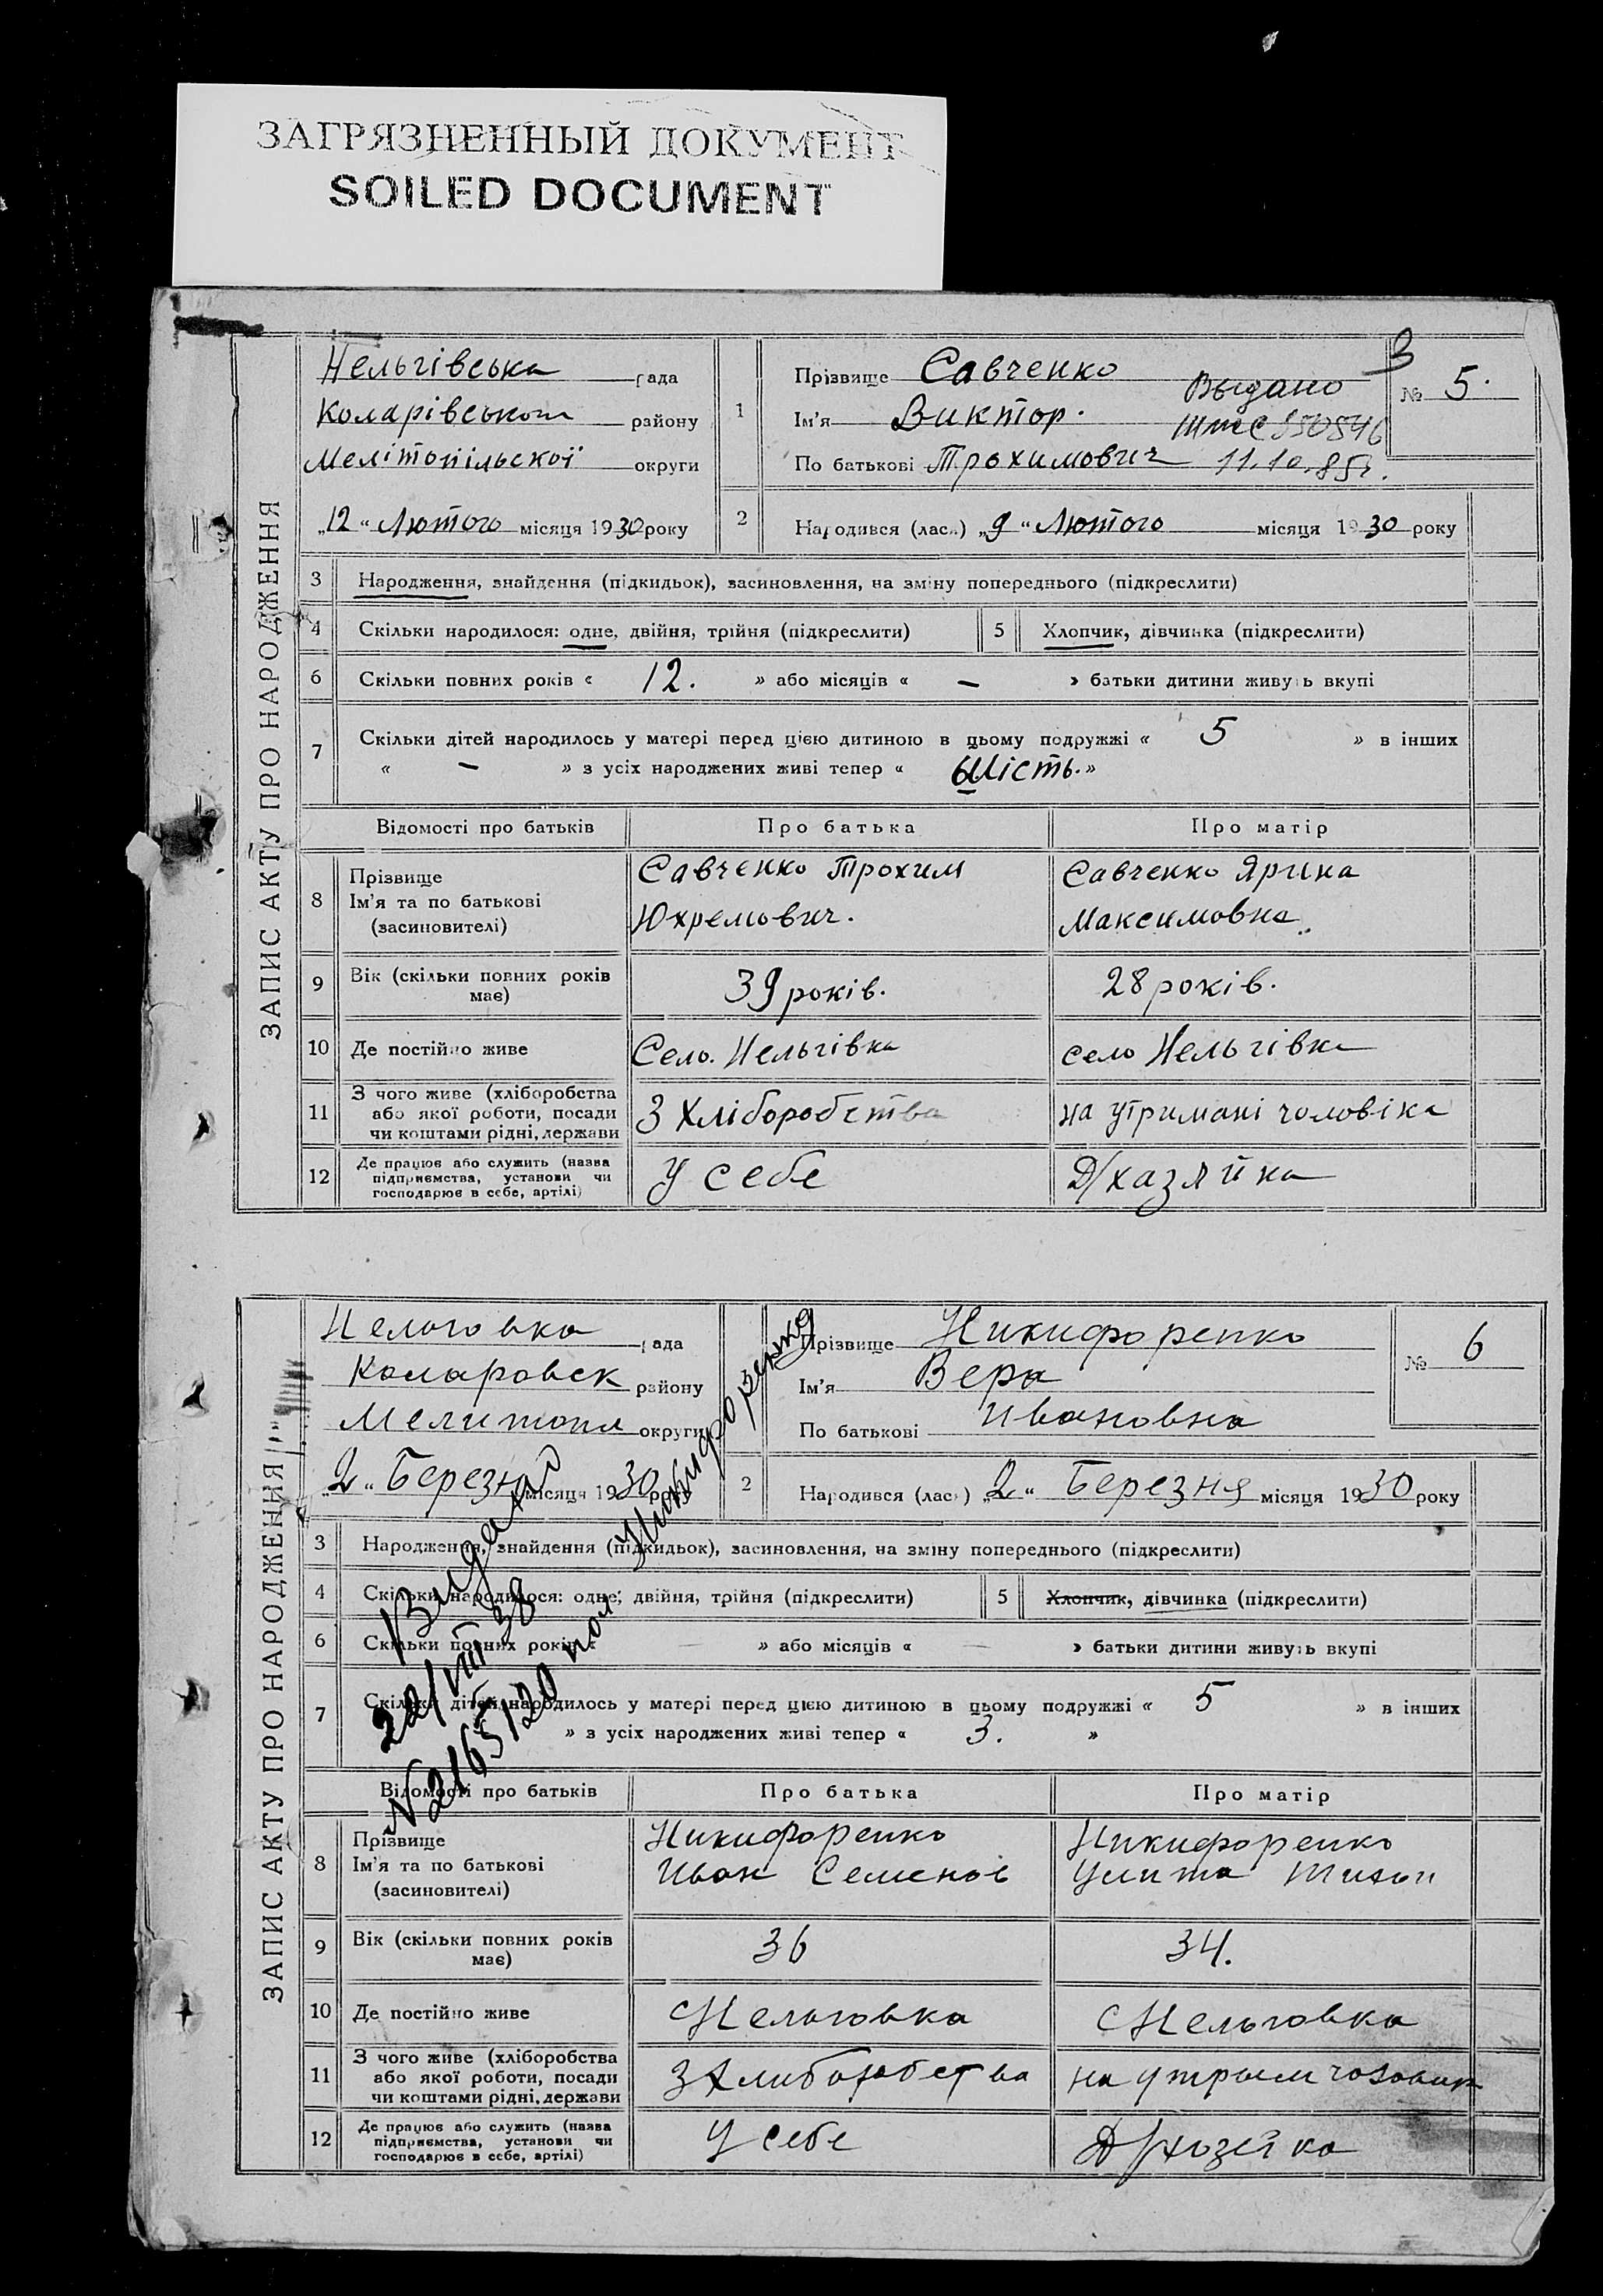 ЗАГРЯЗНЕННЫЙ ДОКУМЕНТ
SOILED DOCUMENT
ЗАПИС АКТУ ПРО НАРОДЖЕННЯ
Нельгівська рада
Коларівського району
Мелітопільскої округи
„12“ Лютого місяця 1930 року
1
Прізвище Савченко
Ім'я Виктор.
По батькові Трохимович
Выдано
850846
11.10.85г.
3
№ 5.
2 Народився (лась) „9“ Лютого місяця 1930 року
3 Народження, знайдення (підкидьок), засиновлення, на зміну попереднього (підкреслити)
4 Скільки народилося: одне, двійня, трійня (підкреслити) 5 Хлопчик, дівчинка (підкреслити)
6 Скільки повних років « 12. » або місяців « – » батьки дитини живуть вкупі
7 Скільки дітей народилось у матері перед цією дитиною в цьому подружжі « 5 » в інших
« – » з усіх народжених живі тепер « шість. »
Відомості про батьків Про батька Про матір
8 Прізвище
Ім'я та по батькові
(засиновителі)
Савченко Трохим
Юхремович.
Савченко Ярина
Максимовна
9 Вік (скільки повних років
має)
39 років.
28 років.
10 Де постійно живе Село. Нельгівка село Нельгівка
11 З чого живе (хліборобства
або якої роботи, посади
чи коштами рідні, держави
З Хліборобства
на утримані чоловіка
12 Де працює або служить (назва
підприємства, установи чи
господарює в себе, артілі)
У себе
Д/хазяйка
ЗАПИС АКТУ ПРО НАРОДЖЕННЯ
Нельговка рада
Коларовск району
Мелитопл округи
„2“ Березня місяця 1930 року
Прізвище Никифоренко
Ім'я Вера
По батькові Ивановна
№ 6
2 Народився (лась) „2“ Березня місяця 1930 року
3 Народження, знайдення (підкидьок), засиновлення, на зміну попереднього (підкреслити)
4 Скільки народилося: одне, двійня, трійня (підкреслити) 5 Хлопчик, дівчинка (підкреслити)
6 Скільки повних років « — » або місяців « — » батьки дитини живуть вкупі
7 Скільки дітей народилось у матері перед цією дитиною в цьому подружжі « 5 » в інших
» з усіх народжених живі тепер « 3. »
Видано
22/VIII 38
№2165/20 пол Никифоренко
Відомості про батьків Про батька Про матір
8 Прізвище
Ім'я та по батькові
(засиновителі)
Никифоренко
Иван Семенов
Никифоренко
Улита Тихон
9 Вік (скільки повних років
має)
36
34.
10 Де постійно живе С Нельговка С Нельговка
11 З чого живе (хліборобства
або якої роботи, посади
чи коштами рідні, держави
З Хлиборобства
на утрым
12 Де працює або служить (назва
підприємства, установи чи
господарює в себе, артілі)
У себе
Д/хозейка